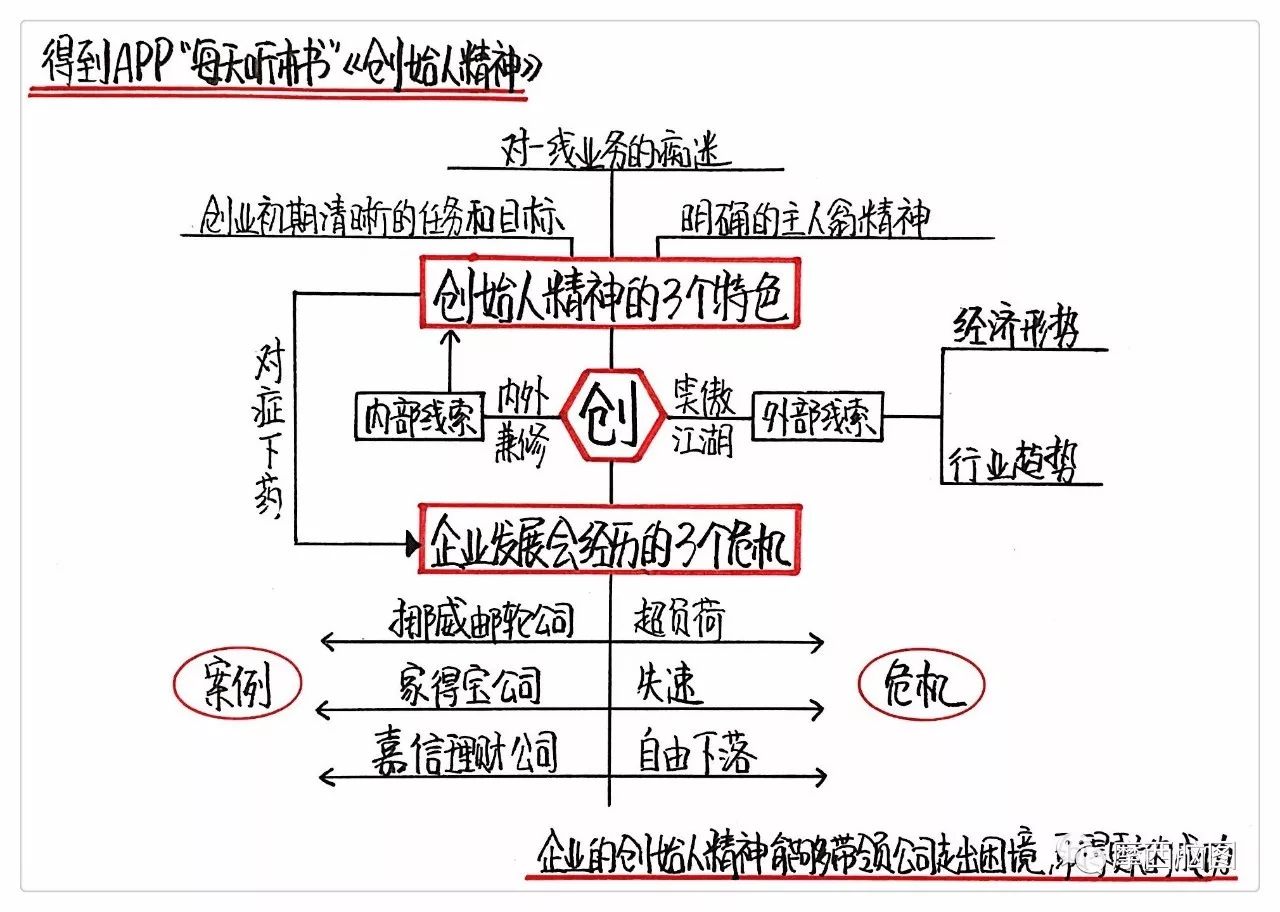 得到APP“每天听本书”《创始人精神》
对一线业务的痴迷
创业初期清晰的任务和目标
明确的主人翁精神
创始人精神的3个特色
对症下药
内部线索
内外
兼修
创
笑傲
江湖
外部线索
经济形势
行业趋势
企业发展会经历的3个危机
挪威邮轮公司
超负荷
案例
家得宝公司
失速
危机
嘉信理财公司
自由下落
企业的创始人精神能够带领公司走出困境,
摩西脑图